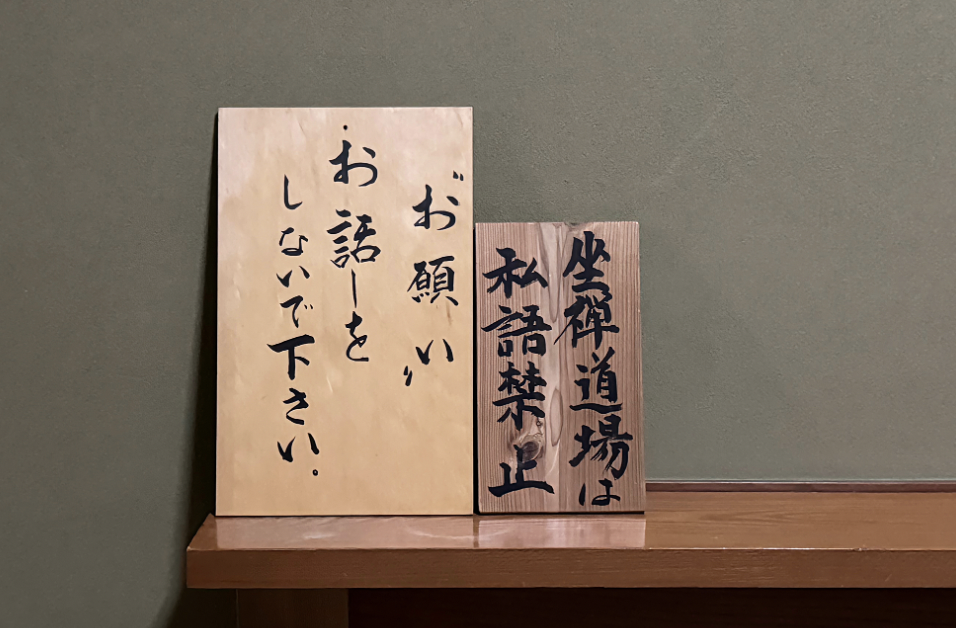 〝お願い〟
お話しを
しないで下さい。
坐禅道場は
私語禁止